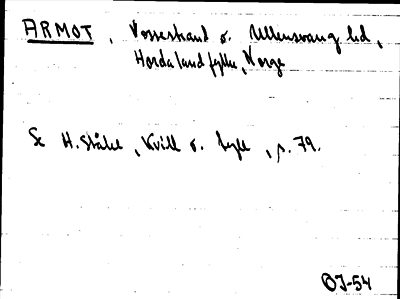 ARMOT, Vossestrand o. Ullensvang hd,
Hordaland fylke, Norge
Se H. Ståhl, Kvill o. fyll, s. 79.
OJ-54